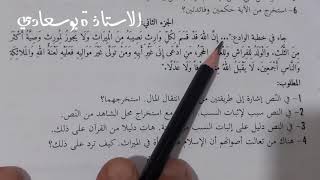 6- استخرج من الآية حكمين وفائدتين؟
الأستاذة بوسعادي
الجزء الثاني
جاء في خطبة الوداع: "... إنّ الله قد قسم لكلّ وارث نصيبه من الميراث ولا يجوز لوارث وصيّة أكثر
من الثلث، والولد للفراش وللعاهر الحجر، من ادّعى إلى غير أبيه أو تولّى غير مواليه فعليه لعنة الله والملائكة
والنّاس أجمعين، لا يقبل الله منه صرفا ولا عدلا."
المطلوب:
1- في النّص إشارة إلى طريقتين من انتقال المال. استخرجهما؟
2- في النص سبب لإثبات النسب، استخرج محل الشاهد من النّص.
3- في النّص دليل على إثبات النسب، هات دليلا من القرآن على ذلك.
4- هناك من تعالت أصواتهم أن الإسلام في الميراث. كيف ترد على ذلك؟